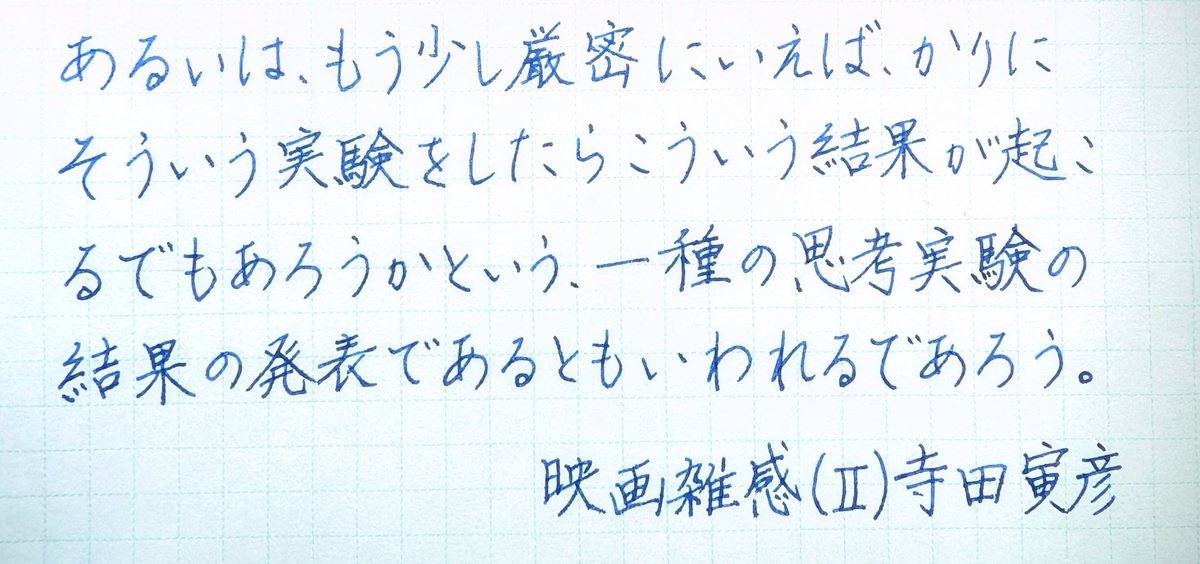 あるいは、もう少し厳密にいえば、かりに
そういう実験をしたらこういう結果が起こ
るでもあろうかという、一種の思考実験の
結果の発表であるともいわれるであろう。
映画雑感(Ⅱ)寺田寅彦